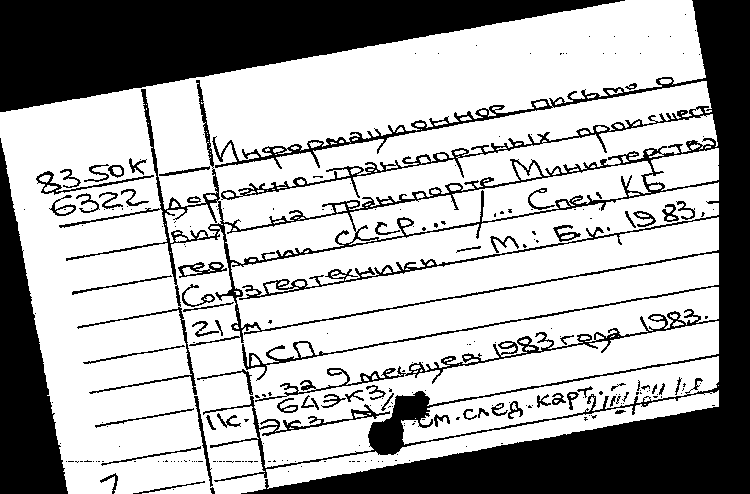 Информационное письмо о
83.50к
6322 дорожно-транспортных происшест-
виях на транспорте Министерства
геологии СССР... / ... Спец. КБ
Союзгеотехники. — М.: Б.и., 1983. -
21 см.
ДСП.
... за 9 месяцев 1983 года 1983.
64 экз.
1к. экз. N см. след. карт.